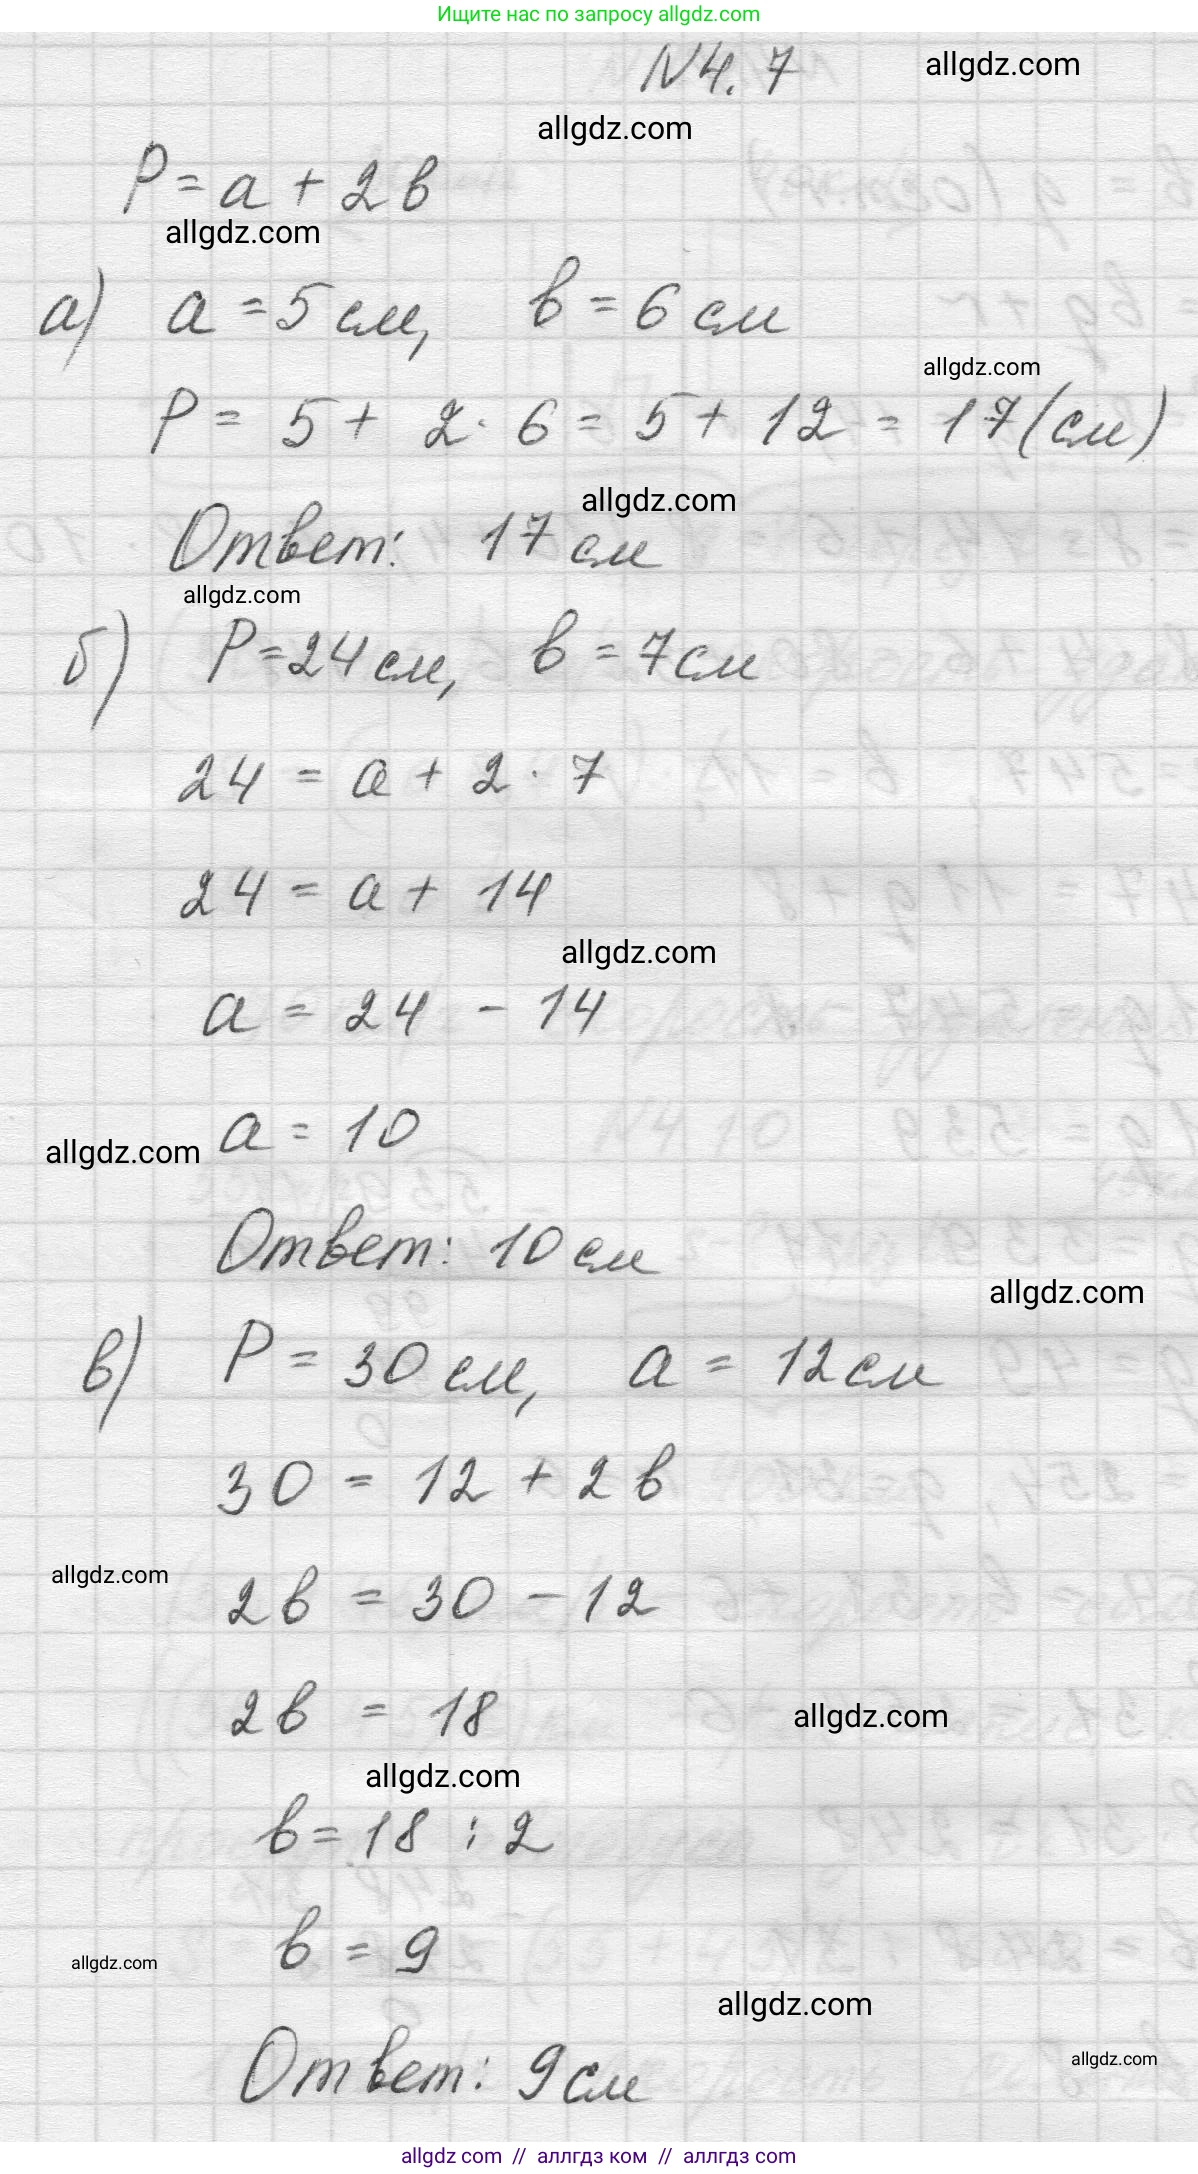 Ищите нас по запросу allgdz.com
N4.7
allgdz.com
allgdz.com
P = a + 2в
allgdz.com
а) a = 5 см, в = 6 см
allgdz.com
P = 5 + 2 · 6 = 5 + 12 = 17 (см)
allgdz.com
Ответ: 17 см
allgdz.com
б) P = 24 см, в = 7 см
24 = a + 2 · 7
24 = a + 14
allgdz.com
a = 24 - 14
a = 10
allgdz.com
Ответ: 10 см
allgdz.com
в) P = 30 см, a = 12 см
30 = 12 + 2в
allgdz.com
2в = 30 - 12
2в = 18
allgdz.com
allgdz.com
в = 18 : 2
в = 9
allgdz.com
allgdz.com
allgdz.com
Ответ: 9 см
allgdz.com // аллгдз ком // аллгдз.com